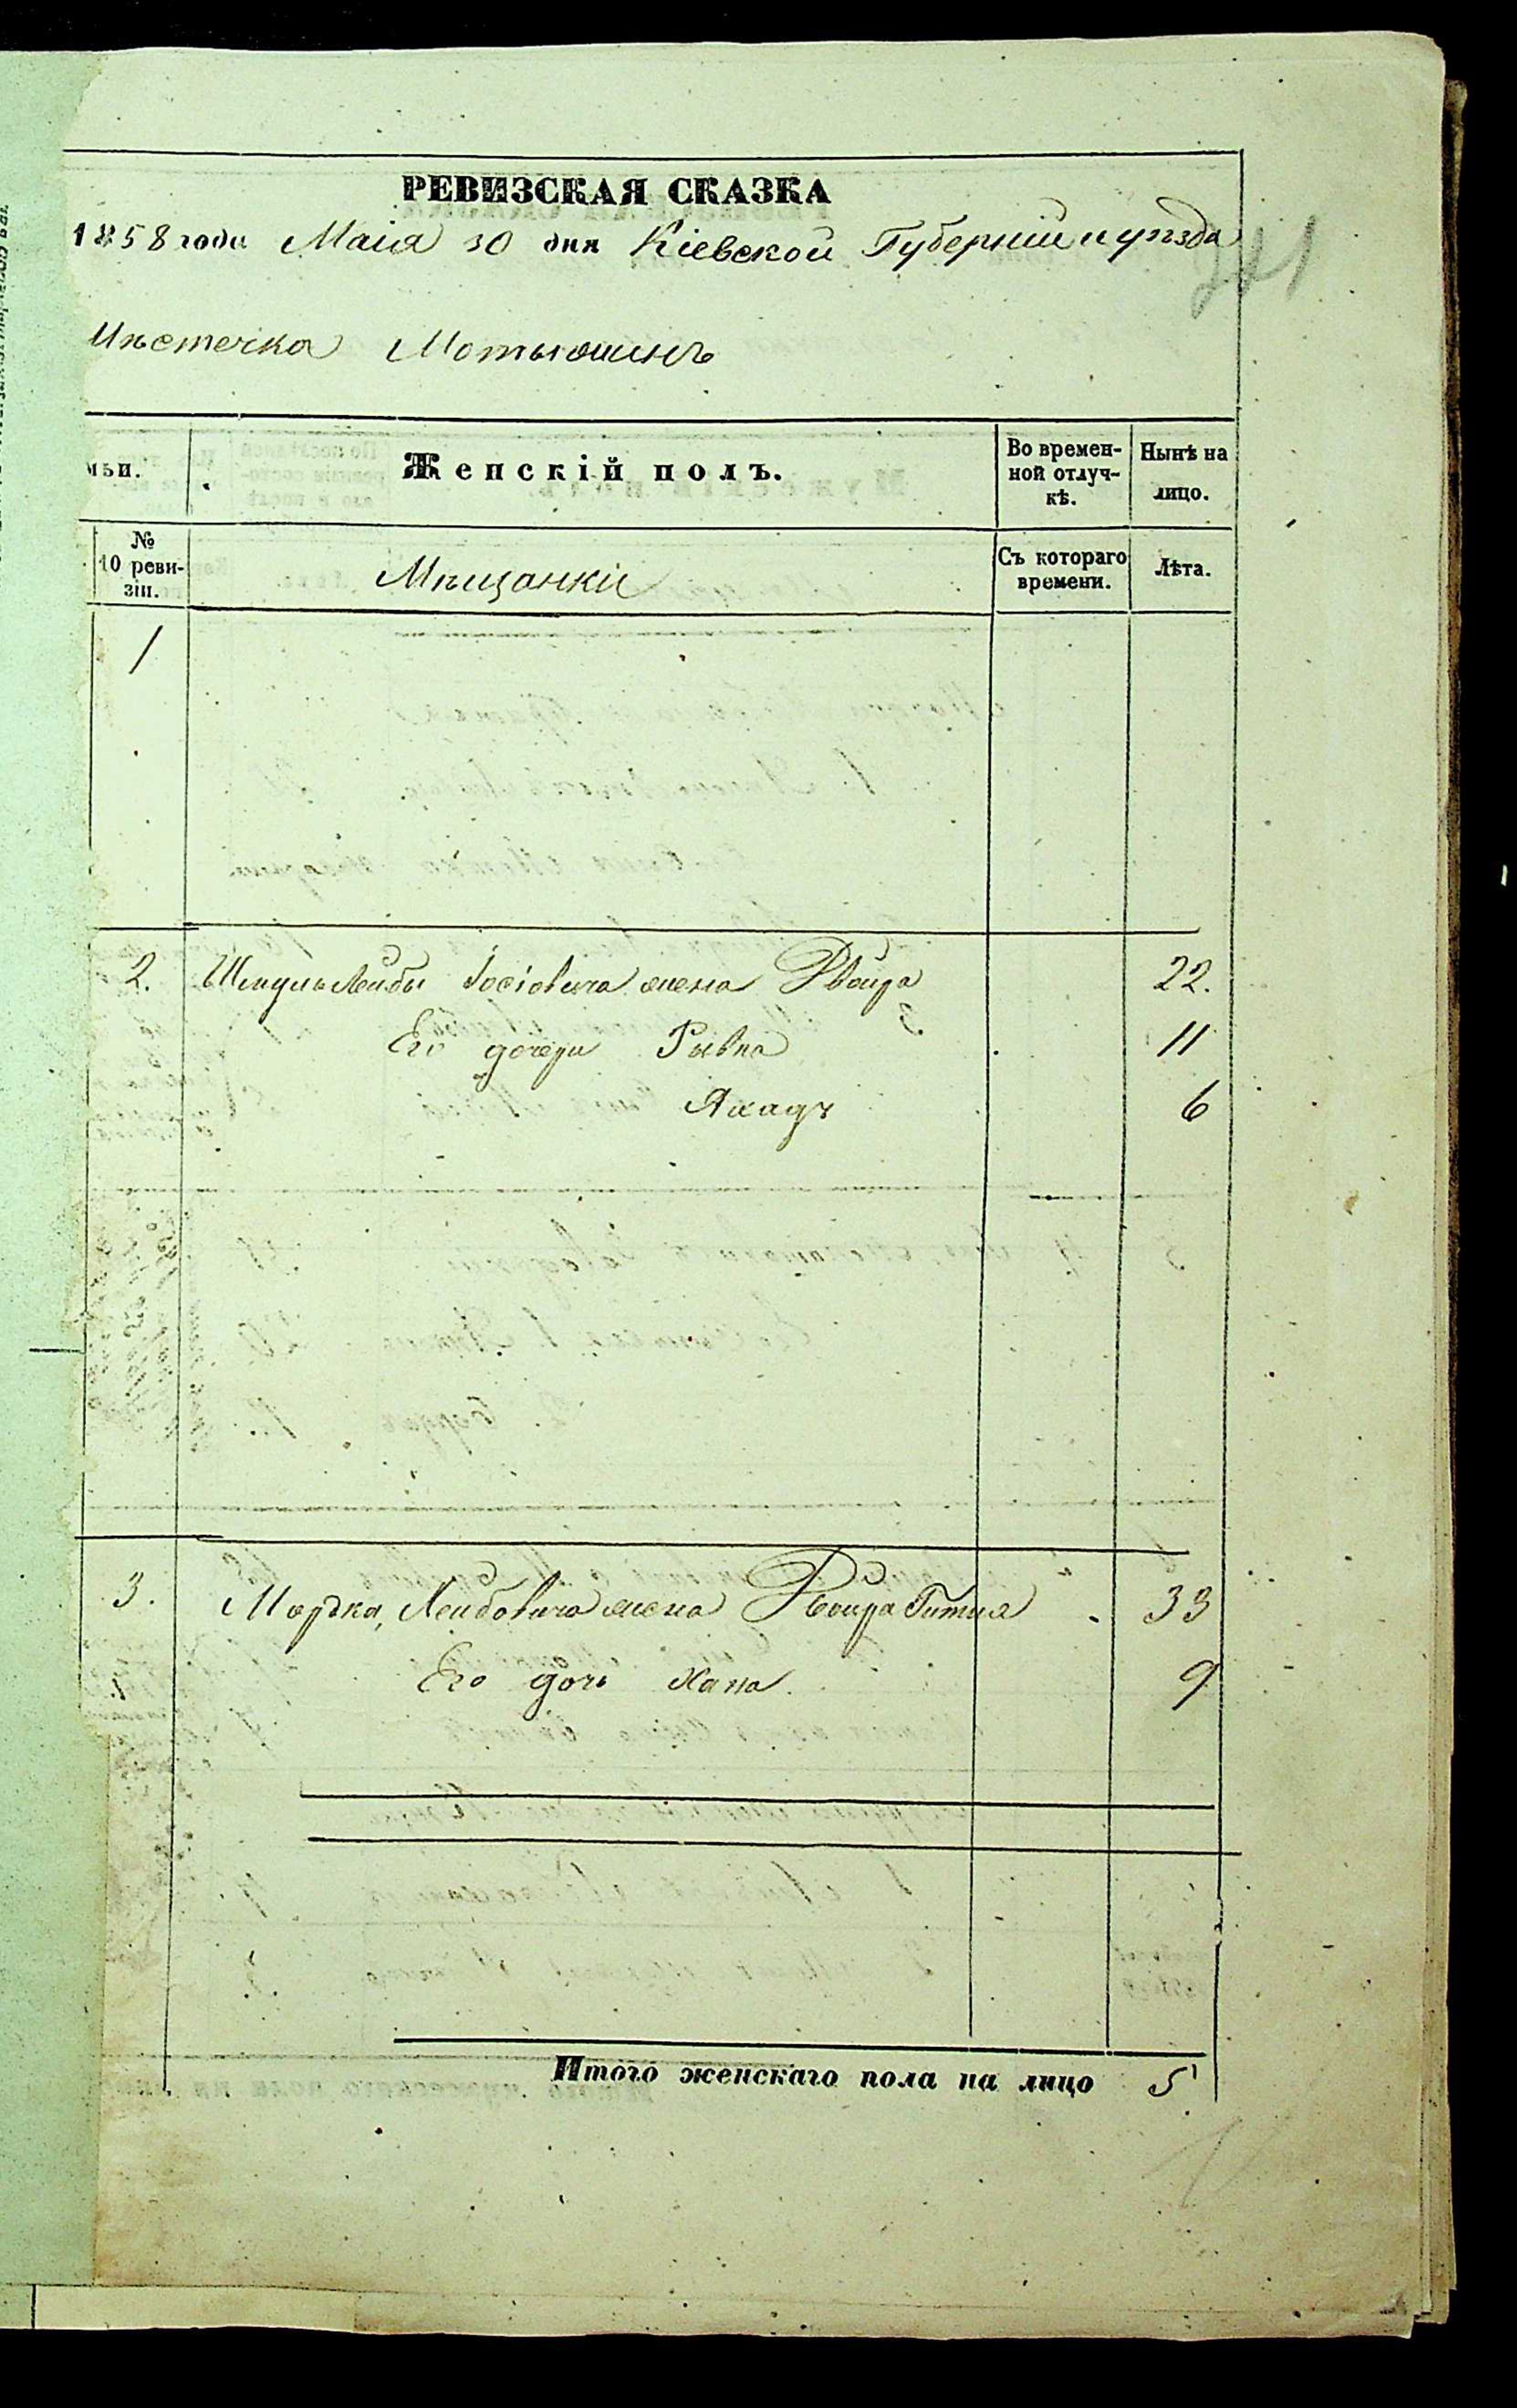 РЕВИЗСКАЯ СКАЗКА
1858 года Маія 30 дня Кіевской Губерніи и уѣзда
341
Мѣстечка Мотыжинъ
мьи.
Женскій полъ.
Во времен-
ной отлуч-
кѣ.
Нынѣ на
лицо.
№
10 реви-
зіи.
Мѣщанки
Съ котораго
времени.
Лѣта.
1
2. Шмуль Лейбы Іосіовича жена Двойра 22.
Его дочери Рывка 11
6
3. Мордка Лейбовича жена Двойра Гитля 33
Его дочь Хана 9
Итого женскаго пола на лицо 5